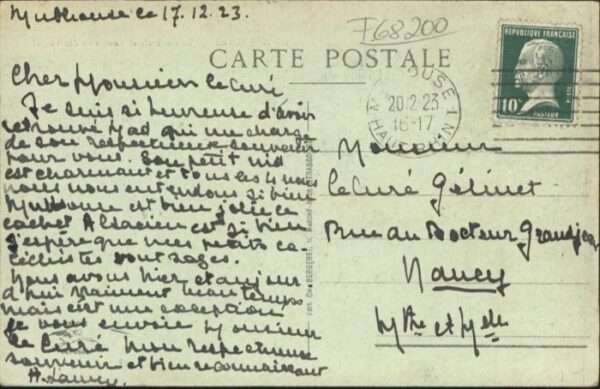 Mulhouse le 17.12.23.
F68200
CARTE POSTALE
RÉPUBLIQUE FRANÇAISE
10
PASTEUR
20.12 23
16-17
Cher Monsieur le Curé
Je suis si heureuse d'avoir
retrouvé Mad qui me charge
de son respectueux souvenir
pour vous. Son petit nid
est charmant et tous les 4 nous
nous nous entendons si bien
Mulhouse est bien jolie le
cachet Alsacien est si bien
J'espère que mes petits ca-
téchistes sont sages.
Nous avons hier et aujour
d'hui vraiment beau temps
mais est une exception
Je vous envoie Monsieur
le Curé mon respectueux
souvenir et bien reconnaissant
Monsieur
le Curé Gélinet
Rue du Docteur Grandjean
Nancy
Mthe et Mlle